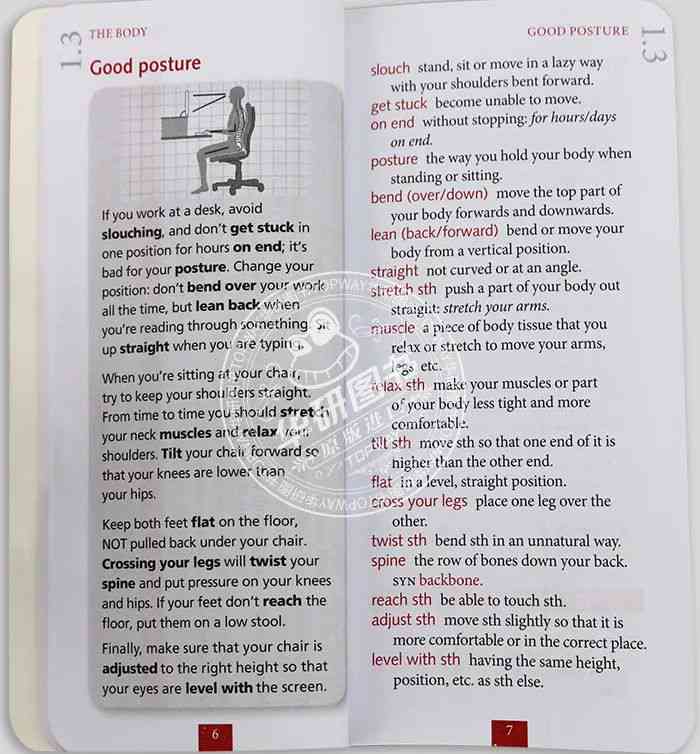 1.3
THE BODY
Good posture
If you work at a desk, avoid
slouching, and don't get stuck in
one position for hours on end; it's
bad for your posture. Change your
position: don't bend over your work
all the time, but lean back when
you're reading through something. Sit
up straight when you are typing.
When you're sitting at your chair,
try to keep your shoulders straight.
From time to time you should stretch
your neck muscles and relax your
shoulders. Tilt your chair forward so
that your knees are lower than
your hips.
Keep both feet flat on the floor,
NOT pulled back under your chair.
Crossing your legs will twist your
spine and put pressure on your knees
and hips. If your feet don't reach the
floor, put them on a low stool.
Finally, make sure that your chair is
adjusted to the right height so that
your eyes are level with the screen.
6
GOOD POSTURE
1.3
slouch stand, sit or move in a lazy way
with your shoulders bent forward.
get stuck become unable to move.
on end without stopping: for hours/days
on end.
posture the way you hold your body when
standing or sitting.
bend (over/down) move the top part of
your body forwards and downwards.
lean (back/forward) bend or move your
body from a vertical position.
straight not curved or at an angle.
stretch sth push a part of your body out
straight: stretch your arms.
muscle a piece of body tissue that you
relax or stretch to move your arms,
legs etc.
relax sth make your muscles or part
of your body less tight and more
comfortable.
tilt sth move sth so that one end of it is
higher than the other end.
flat in a level, straight position.
cross your legs place one leg over the
other.
twist sth bend sth in an unnatural way.
spine the row of bones down your back.
SYN backbone.
reach sth be able to touch sth.
adjust sth move sth slightly so that it is
more comfortable or in the correct place.
level with sth having the same height,
position, etc. as sth else.
7
华研图书
原版进口